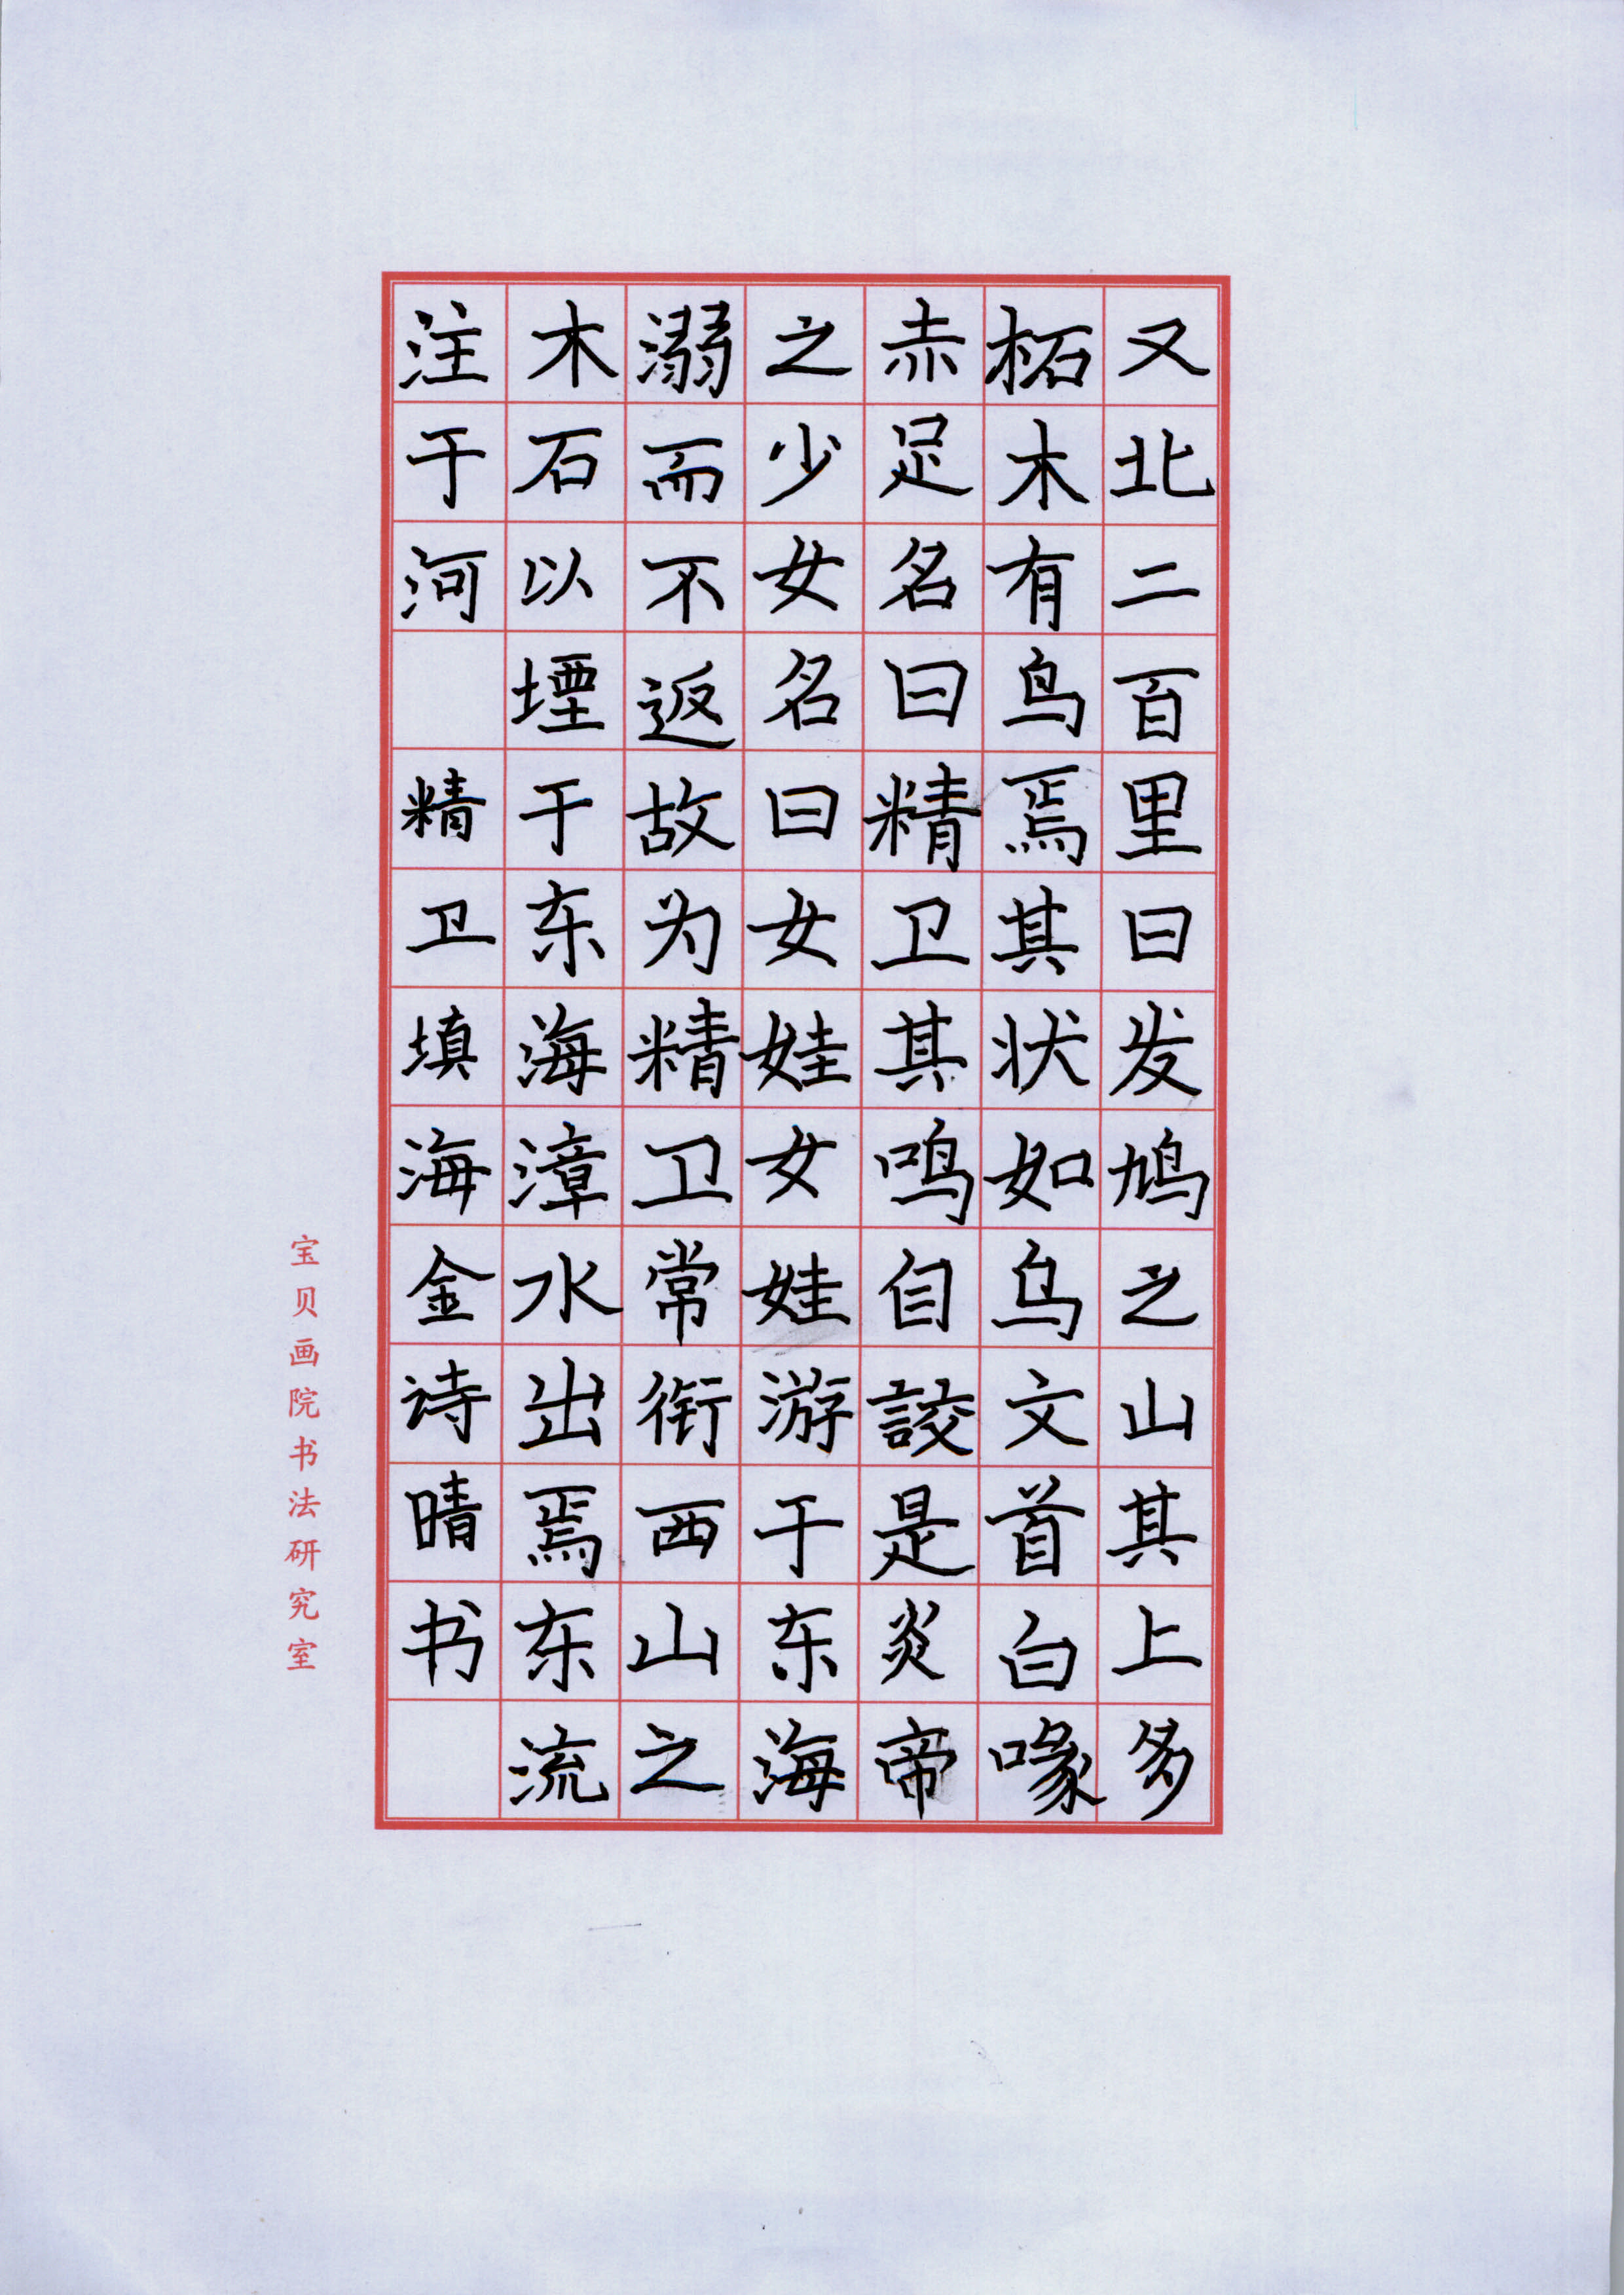 又北二百里曰发鸠之山其上多
柘木有鸟焉其状如乌文首白喙
赤足名曰精卫其鸣自詨是炎帝
之少女名曰女娃女娃游于东海
溺而不返故为精卫常衔西山之
木石以堙于东海漳水出焉东流
注于河 精卫填海金诗晴书
宝贝画院书法研究室